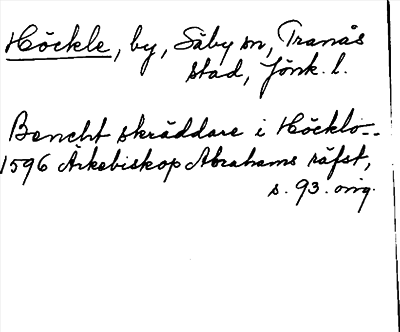 Höckle, by, Säby sn, Tranås
stad, Jönk. l.
Bencht skräddare i Höcklo--
1596 Ärkebiskop Abrahams räfst,
s. 93. orig.